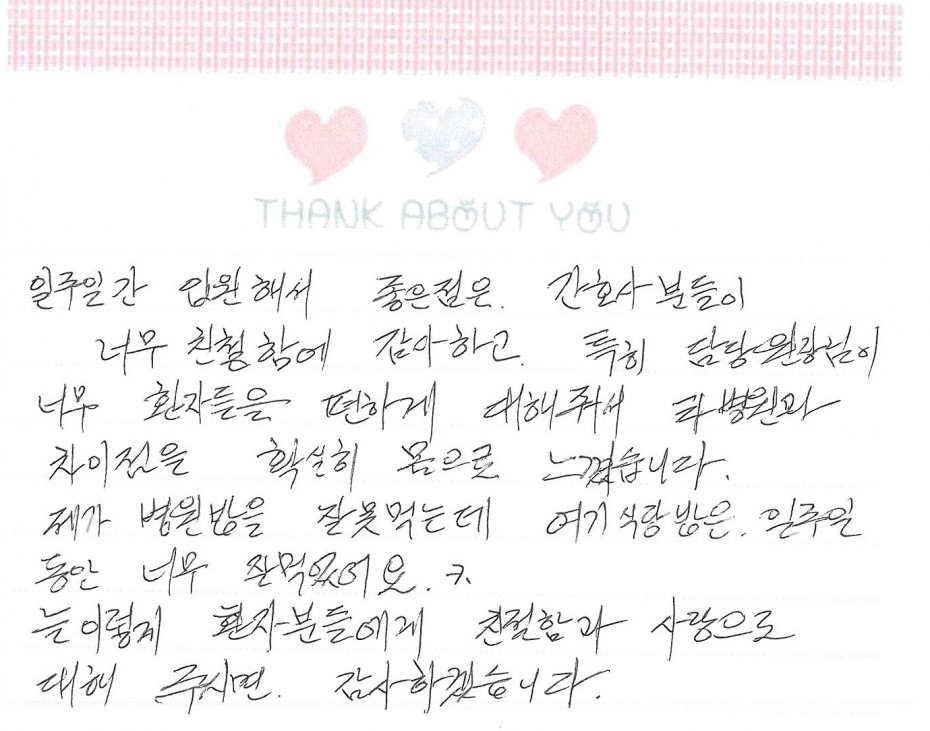 THANK ABOUT YOU
일주일간 입원해서 좋은점은. 간호사분들이
너무 친절함에 감사하고. 특히 담당원장님이
너무 환자들을 편하게 대해줘서 타병원과
차이점을 확실히 몸으로 느꼈습니다.
제가 병원밥을 잘못먹는데 여기식당밥은. 일주일
동안 너무 잘먹었어요. ㅋ.
늘이렇게 환자분들에게 친절함과 사랑으로
대해 주시면. 감사하겠습니다.